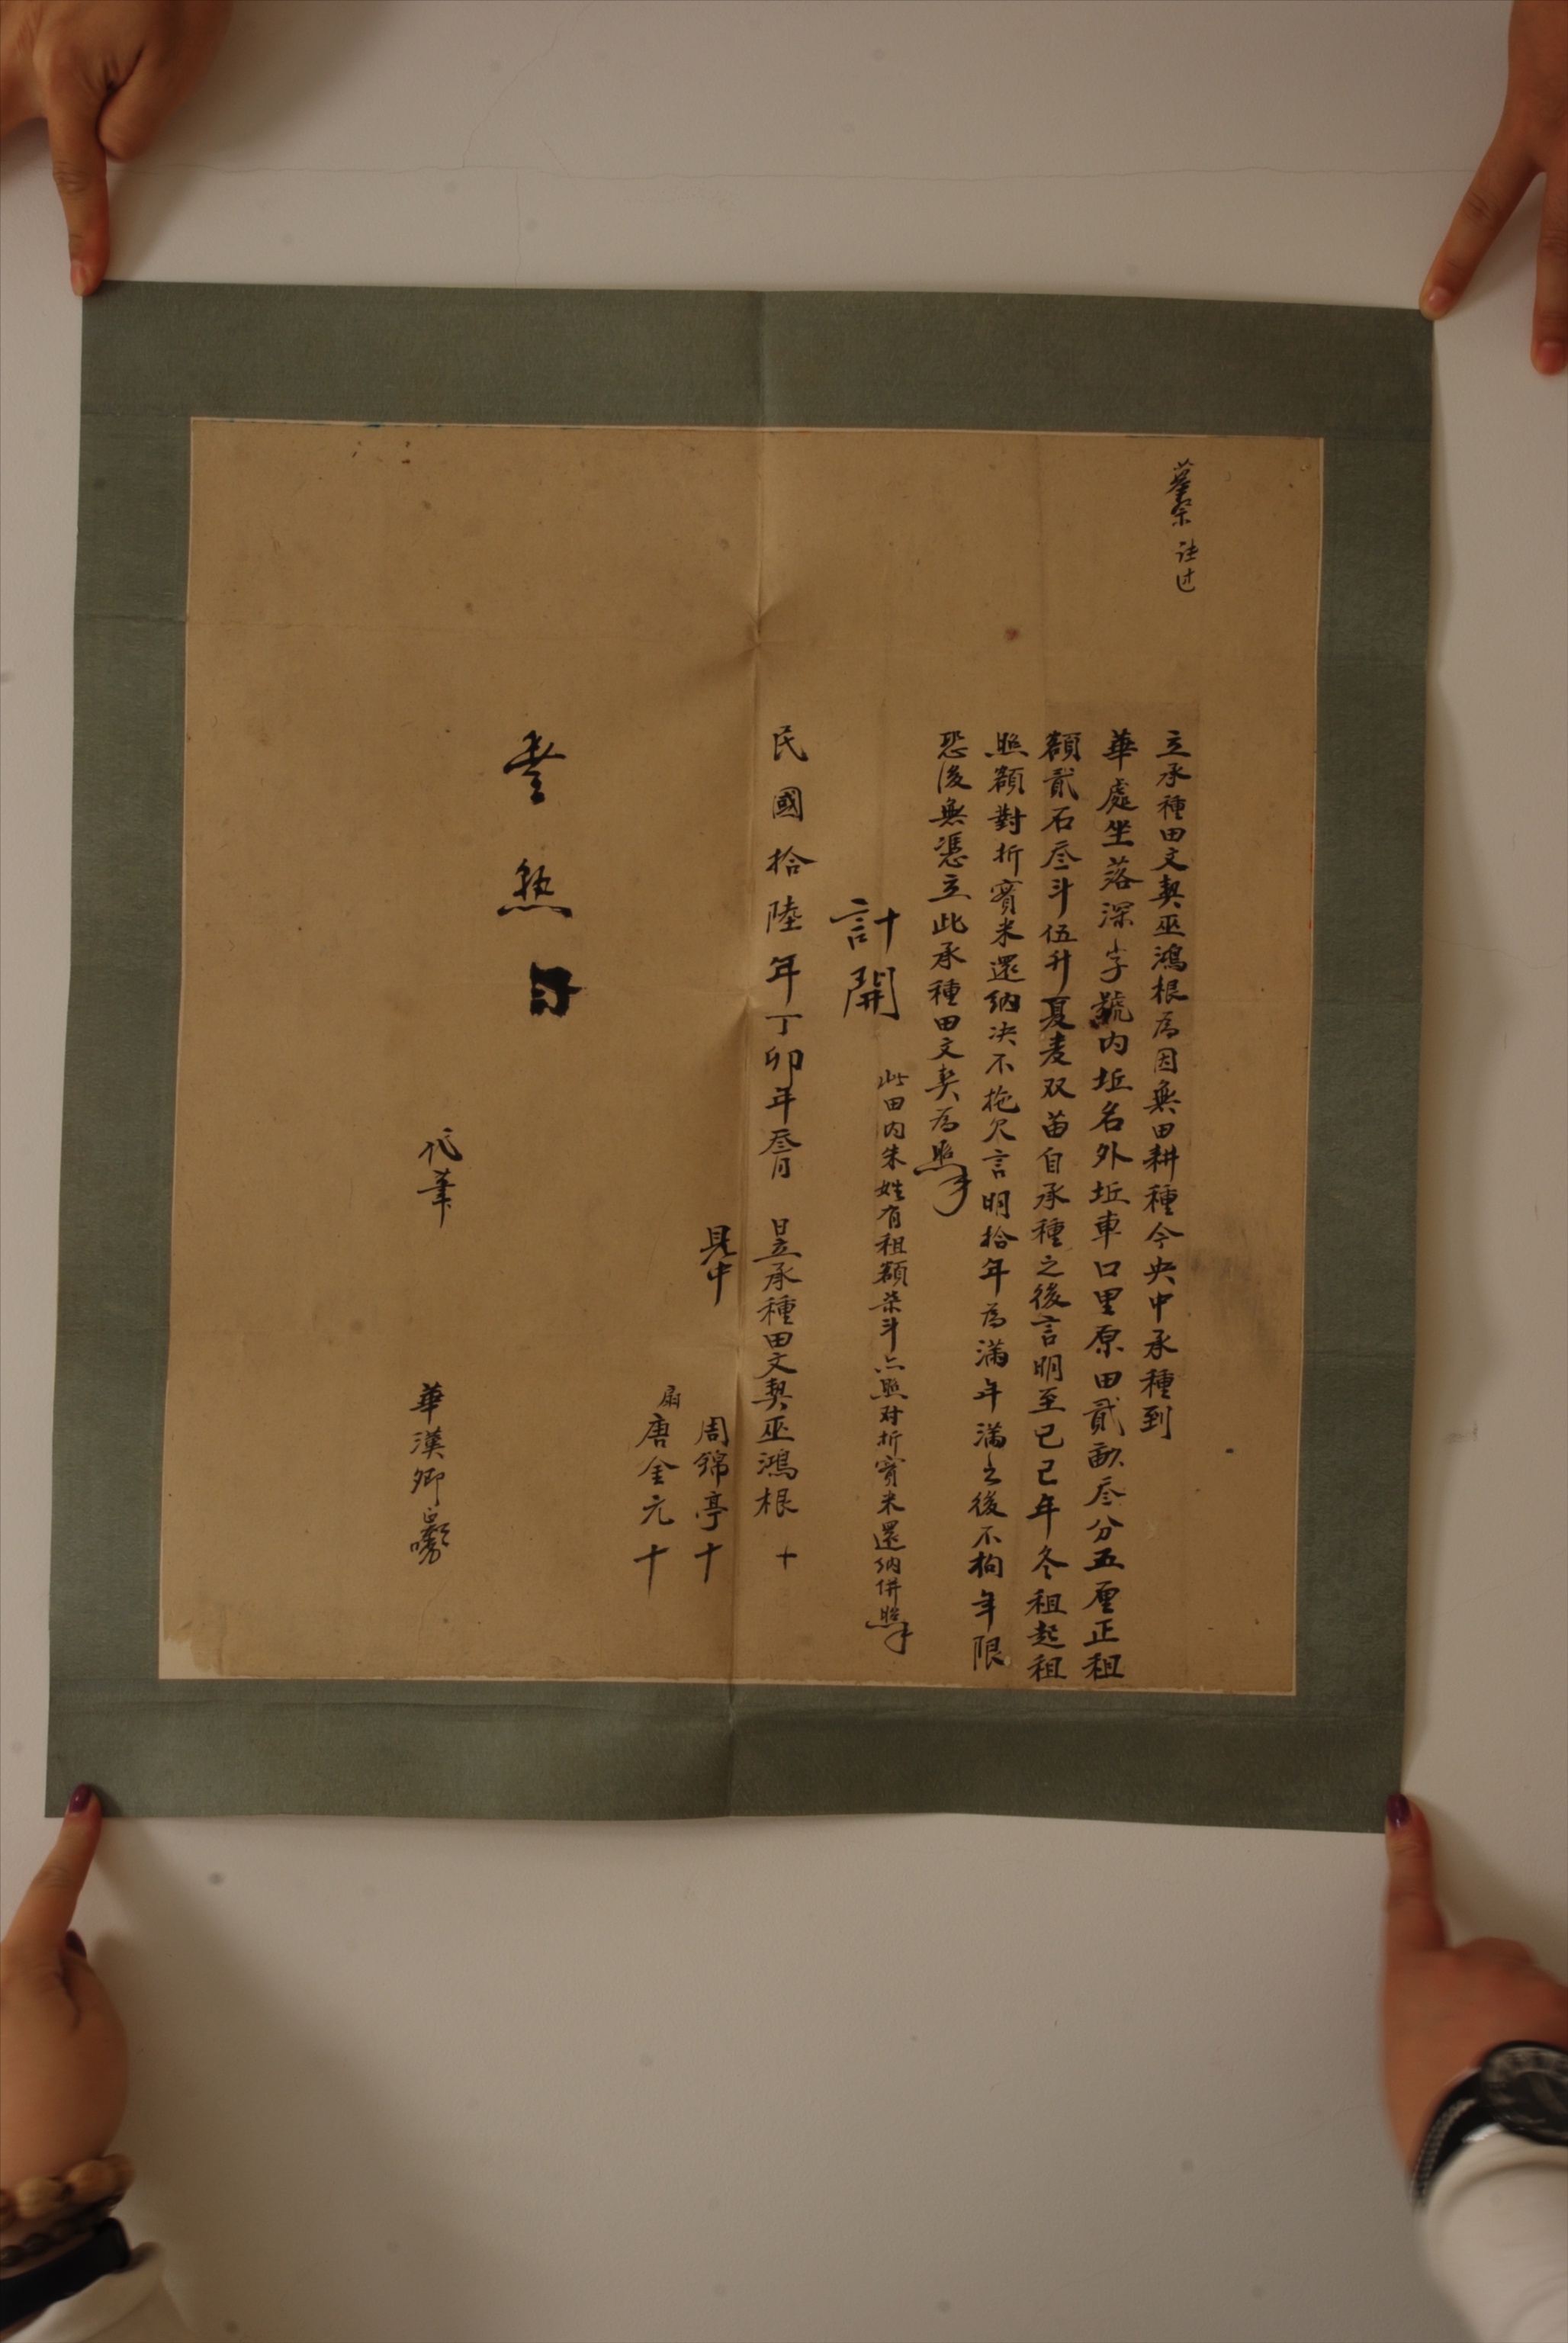 註过
立承種田文契巫鴻根為因無田耕種今央中承種到
華處坐落深字號內坵名外坵車口里原田貳畝叁分五厘正租
額貳石叁斗伍升夏麦双苗自承種之後言明至己巳年冬租起租
照額對折實米還納决不拖欠言明拾年為滿年滿之後不拘年限
恐後無憑立此承種田文契為照
計開
此田內朱姓有租額柒斗亦照对折實米還納併照
民國拾陸年丁卯年叁月 日立承種田文契巫鴻根 十
見中
周錦亭 十
唐金元 十
代筆
華漢卿